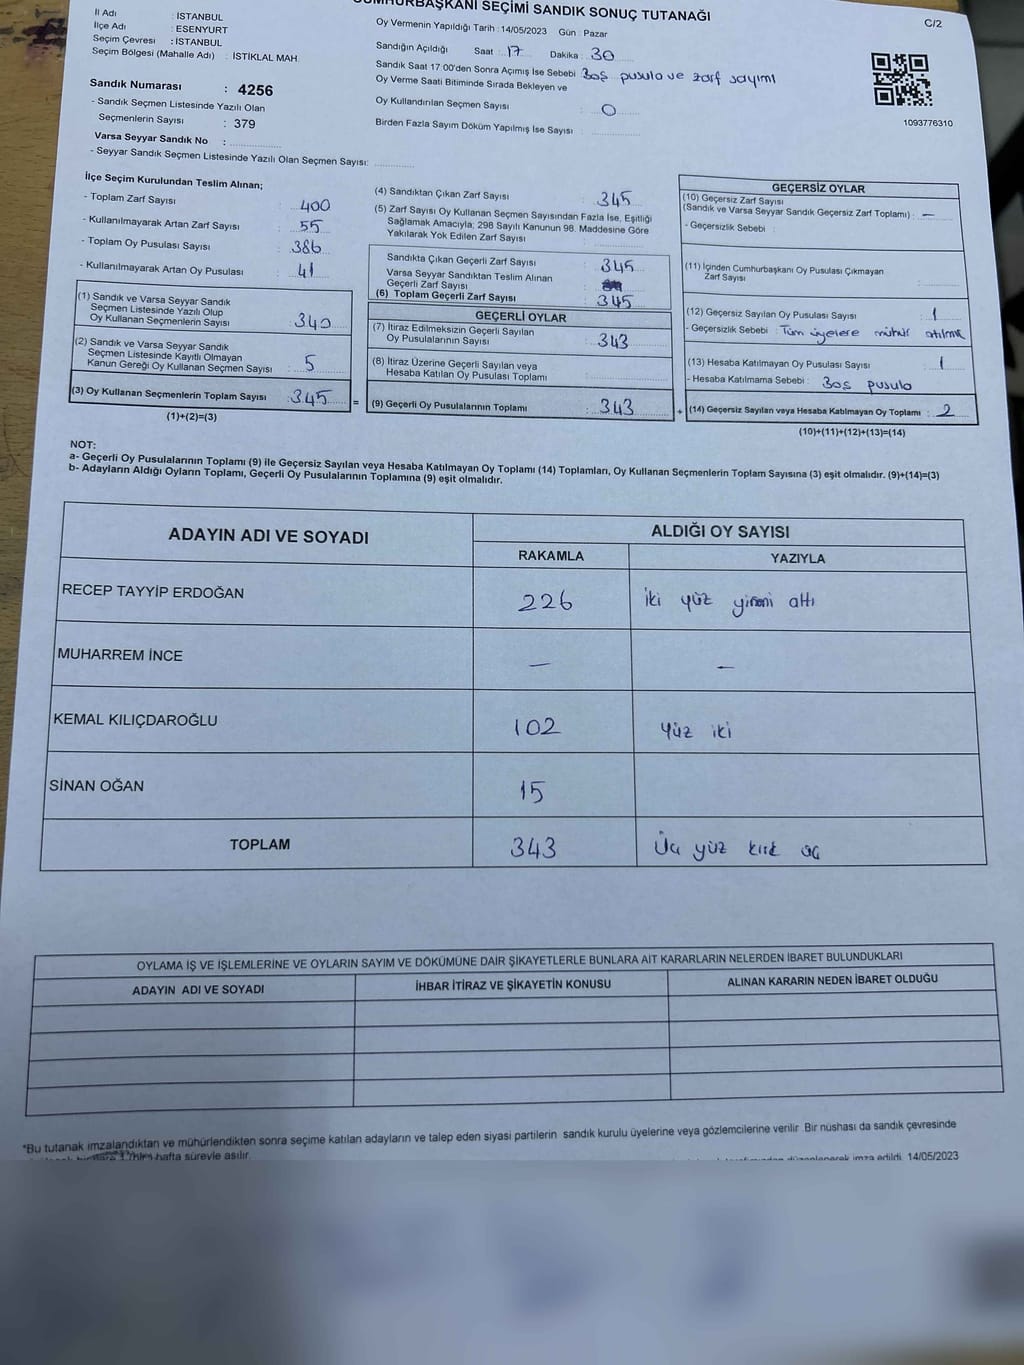 CUMHURBAŞKANI SEÇİMİ SANDIK SONUÇ TUTANAĞI
C/2
İl Adı : İSTANBUL
İlçe Adı : ESENYURT
Seçim Çevresi : İSTANBUL
Seçim Bölgesi (Mahalle Adı) : İSTİKLAL MAH.
Sandık Numarası : 4256
- Sandık Seçmen Listesinde Yazılı Olan
Seçmenlerin Sayısı : 379
Varsa Seyyar Sandık No :
- Seyyar Sandık Seçmen Listesinde Yazılı Olan Seçmen Sayısı:
Oy Vermenin Yapıldığı Tarih : 14/05/2023 Gün : Pazar
Sandığın Açıldığı Saat : 17 Dakika : 30
Sandık Saat 17:00'den Sonra Açımış İse Sebebi Boş pusula ve zarf sayımı
Oy Verme Saati Bitiminde Sırada Bekleyen ve
Oy Kullandırılan Seçmen Sayısı : 0
Birden Fazla Sayım Döküm Yapılmış İse Sayısı :
1093776310
İlçe Seçim Kurulundan Teslim Alınan;
- Toplam Zarf Sayısı : 400
- Kullanılmayarak Artan Zarf Sayısı : 55
- Toplam Oy Pusulası Sayısı : 386
- Kullanılmayarak Artan Oy Pusulası : 41
(1) Sandık ve Varsa Seyyar Sandık
Seçmen Listesinde Yazılı Olup
Oy Kullanan Seçmenlerin Sayısı : 340
(2) Sandık ve Varsa Seyyar Sandık
Seçmen Listesinde Kayıtlı Olmayan
Kanun Gereği Oy Kullanan Seçmen Sayısı : 5
(3) Oy Kullanan Seçmenlerin Toplam Sayısı : 345
(1)+(2)=(3)
(4) Sandıktan Çıkan Zarf Sayısı : 345
(5) Zarf Sayısı Oy Kullanan Seçmen Sayısından Fazla İse, Eşitliği
Sağlamak Amacıyla; 298 Sayılı Kanunun 98. Maddesine Göre
Yakılarak Yok Edilen Zarf Sayısı :
Sandıkta Çıkan Geçerli Zarf Sayısı : 345
Varsa Seyyar Sandıktan Teslim Alınan
Geçerli Zarf Sayısı :
(6) Toplam Geçerli Zarf Sayısı : 345
GEÇERLİ OYLAR
(7) İtiraz Edilmeksizin Geçerli Sayılan
Oy Pusulalarının Sayısı : 343
(8) İtiraz Üzerine Geçerli Sayılan veya
Hesaba Katılan Oy Pusulası Toplamı :
= (9) Geçerli Oy Pusulalarının Toplamı : 343
GEÇERSİZ OYLAR
(10) Geçersiz Zarf Sayısı
(Sandık ve Varsa Seyyar Sandık Geçersiz Zarf Toplamı) : —
- Geçersizlik Sebebi :
(11) İçinden Cumhurbaşkanı Oy Pusulası Çıkmayan
Zarf Sayısı :
(12) Geçersiz Sayılan Oy Pusulası Sayısı : 1
- Geçersizlik Sebebi : Tüm üyelere mühür atılmış
(13) Hesaba Katılmayan Oy Pusulası Sayısı : 1
- Hesaba Katılmama Sebebi : Boş pusula
+ (14) Geçersiz Sayılan veya Hesaba Katılmayan Oy Toplamı : 2
(10)+(11)+(12)+(13)=(14)
NOT:
a- Geçerli Oy Pusulalarının Toplamı (9) ile Geçersiz Sayılan veya Hesaba Katılmayan Oy Toplamı (14) Toplamları, Oy Kullanan Seçmenlerin Toplam Sayısına (3) eşit olmalıdır. (9)+(14)=(3)
b- Adayların Aldığı Oyların Toplamı, Geçerli Oy Pusulalarının Toplamına (9) eşit olmalıdır.
ADAYIN ADI VE SOYADI ALDIĞI OY SAYISI
RAKAMLA YAZIYLA
RECEP TAYYİP ERDOĞAN 226 iki yüz yirmi altı
MUHARREM İNCE — —
KEMAL KILIÇDAROĞLU 102 Yüz iki
SİNAN OĞAN 15
TOPLAM 343 Üç yüz kırk üç
OYLAMA İŞ VE İŞLEMLERİNE VE OYLARIN SAYIM VE DÖKÜMÜNE DAİR ŞİKAYETLERLE BUNLARA AİT KARARLARIN NELERDEN İBARET BULUNDUKLARI
ADAYIN ADI VE SOYADI İHBAR İTİRAZ VE ŞİKAYETİN KONUSU ALINAN KARARIN NEDEN İBARET OLDUĞU
*Bu tutanak imzalandıktan ve mühürlendikten sonra seçime katılan adayların ve talep eden siyasi partilerin sandık kurulu üyelerine veya gözlemcilerine verilir. Bir nüshası da sandık çevresinde
hafta süreyle asılır. düzenlenerek imza edildi. 14/05/2023